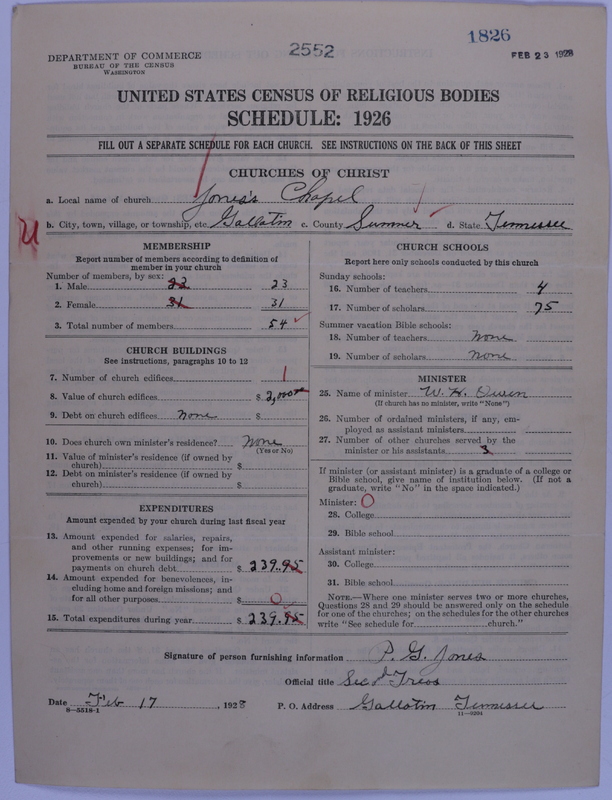 1826
2552
FEB 23 1928
DEPARTMENT OF COMMERCE
BUREAU OF THE CENSUS
WASHINGTON
UNITED STATES CENSUS OF RELIGIOUS BODIES
SCHEDULE: 1926
FILL OUT A SEPARATE SCHEDULE FOR EACH CHURCH. SEE INSTRUCTIONS ON THE BACK OF THIS SHEET
CHURCHES OF CHRIST
a. Local name of church Jones's Chapel
b. City, town, village, or township, etc. Gallatin c. County Sumner d. State Tennessee
MEMBERSHIP
Report number of members according to definition of
member in your church
Number of members, by sex:
1. Male 23 23
2. Female 31 31
3. Total number of members 54
CHURCH BUILDINGS
See instructions, paragraphs 10 to 12
7. Number of church edifices 1
8. Value of church edifices $ 2,000
9. Debt on church edifices None $
10. Does church own minister's residence? None
(Yes or No)
11. Value of minister's residence (if owned by
church) $
12. Debt on minister's residence (if owned by
church) $
EXPENDITURES
Amount expended by your church during last fiscal year
13. Amount expended for salaries, repairs,
and other running expenses; for im-
provements or new buildings; and for
payments on church debt $ 239.95
14. Amount expended for benevolences, in-
cluding home and foreign missions; and
for all other purposes $ 0
15. Total expenditures during year $ 239.95
CHURCH SCHOOLS
Report here only schools conducted by this church
Sunday schools:
16. Number of teachers 4
17. Number of scholars 75
Summer vacation Bible schools:
18. Number of teachers None
19. Number of scholars None
MINISTER
25. Name of minister W. H. Owen
(If church has no minister, write "None")
26. Number of ordained ministers, if any, em-
ployed as assistant ministers
27. Number of other churches served by the
minister or his assistants 3
If minister (or assistant minister) is a graduate of a college or
Bible school, give name of institution below. (If not a
graduate, write "No" in the space indicated.)
Minister: O
28. College
29. Bible school
Assistant minister:
30. College
31. Bible school
NOTE.—Where one minister serves two or more churches,
Questions 28 and 29 should be answered only on the schedule
for one of the churches; on the schedules for the other churches
write "See schedule for church."
Signature of person furnishing information P. G. Jones
Official title Sec & Treas
Date Feb 17, 1928 P. O. Address Gallatin Tennessee
8-5518-1 11-9394